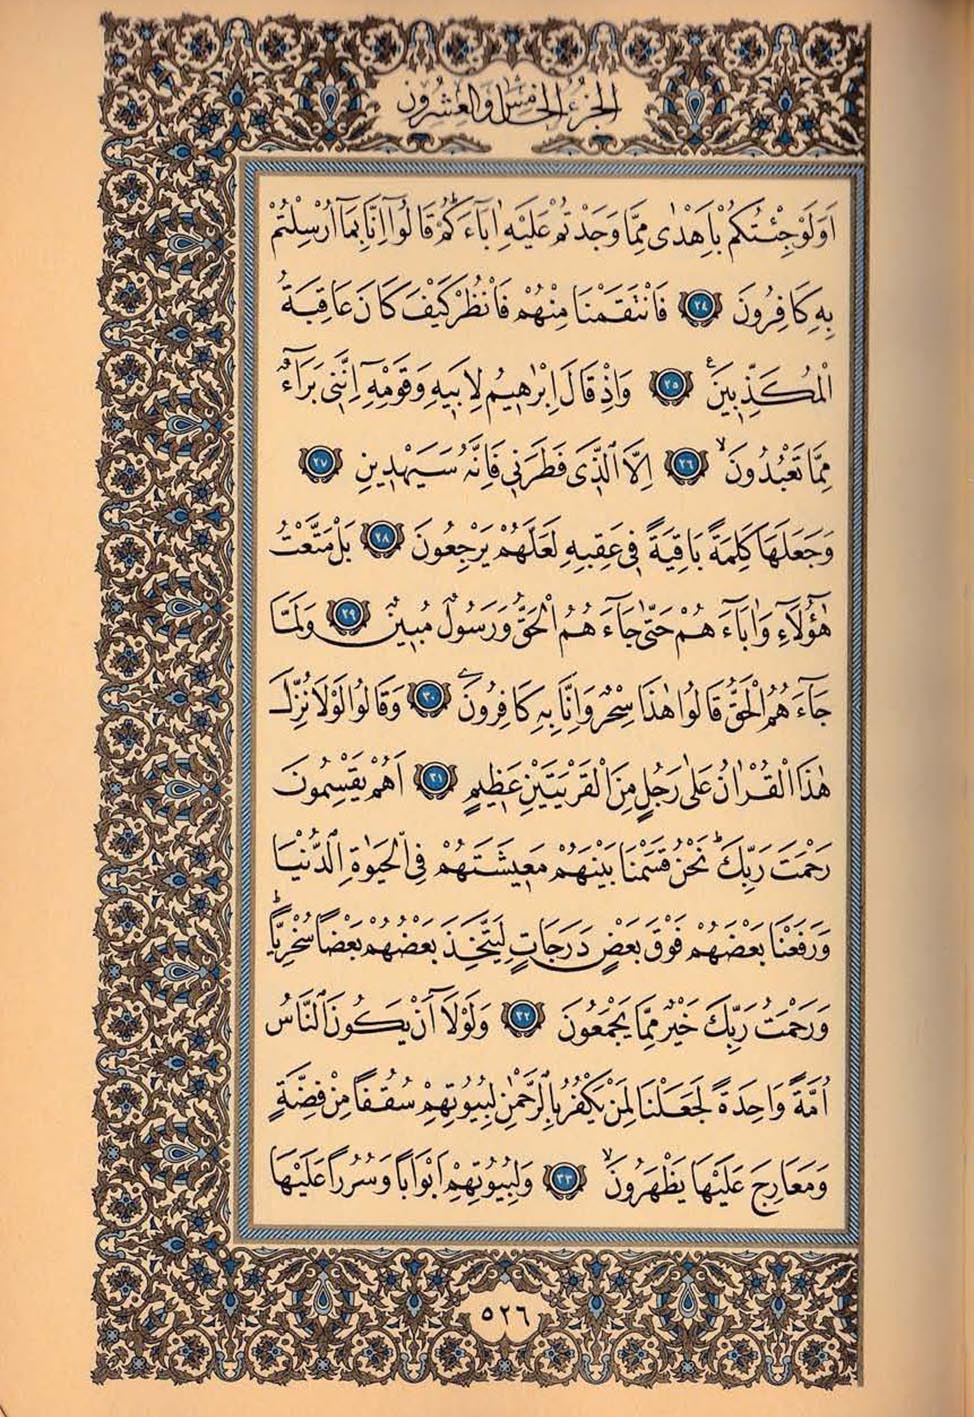 الجزء الخامس والعشرون
اَوَلَوْ جِئْتُكُمْ بِاَهْدٰى مِمَّا وَجَدْتُمْ عَلَيْهِ اٰبَٓاءَكُمْۜ قَالُٓوا اِنَّا بِمَٓا اُرْسِلْتُمْ
بِهِ كَافِرُونَ ٢٤ فَانْتَقَمْنَا مِنْهُمْ فَانْظُرْ كَيْفَ كَانَ عَاقِبَةُ
الْمُكَذِّبِينَ۟ ٢٥ وَاِذْ قَالَ اِبْرٰهِيمُ لِاَبِيهِ وَقَوْمِهِٓ اِنَّنِي بَرَٓاءٌ
مِمَّا تَعْبُدُونَۙ ٢٦ اِلَّا الَّذِي فَطَرَنِي فَاِنَّهُ سَيَهْدِينِ ٢٧
وَجَعَلَهَا كَلِمَةً بَاقِيَةً فِي عَقِبِهِ لَعَلَّهُمْ يَرْجِعُونَ ٢٨ بَلْ مَتَّعْتُ
هٰٓؤُ۬لَٓاءِ وَاٰبَٓاءَهُمْ حَتّٰى جَٓاءَهُمُ الْحَقُّ وَرَسُولٌ مُبِينٌ ٢٩ وَلَمَّا
جَٓاءَهُمُ الْحَقُّ قَالُوا هٰذَا سِحْرٌ وَاِنَّا بِهِ كَافِرُونَ ٣٠ وَقَالُوا لَوْلَا نُزِّلَ
هٰذَا الْقُرْاٰنُ عَلٰى رَجُلٍ مِنَ الْقَرْيَتَيْنِ عَظِيمٍ ٣١ اَهُمْ يَقْسِمُونَ
رَحْمَتَ رَبِّكَۜ نَحْنُ قَسَمْنَا بَيْنَهُمْ مَعِيشَتَهُمْ فِي الْحَيٰوةِ الدُّنْيَا
وَرَفَعْنَا بَعْضَهُمْ فَوْقَ بَعْضٍ دَرَجَاتٍ لِيَتَّخِذَ بَعْضُهُمْ بَعْضًا سُخْرِيًّاۜ
وَرَحْمَتُ رَبِّكَ خَيْرٌ مِمَّا يَجْمَعُونَ ٣٢ وَلَوْلَٓا اَنْ يَكُونَ النَّاسُ
اُمَّةً وَاحِدَةً لَجَعَلْنَا لِمَنْ يَكْفُرُ بِالرَّحْمٰنِ لِبُيُوتِهِمْ سُقُفًا مِنْ فِضَّةٍ
وَمَعَارِجَ عَلَيْهَا يَظْهَرُونَۙ ٣٣ وَلِبُيُوتِهِمْ اَبْوَابًا وَسُرُرًا عَلَيْهَا
٥٢٦